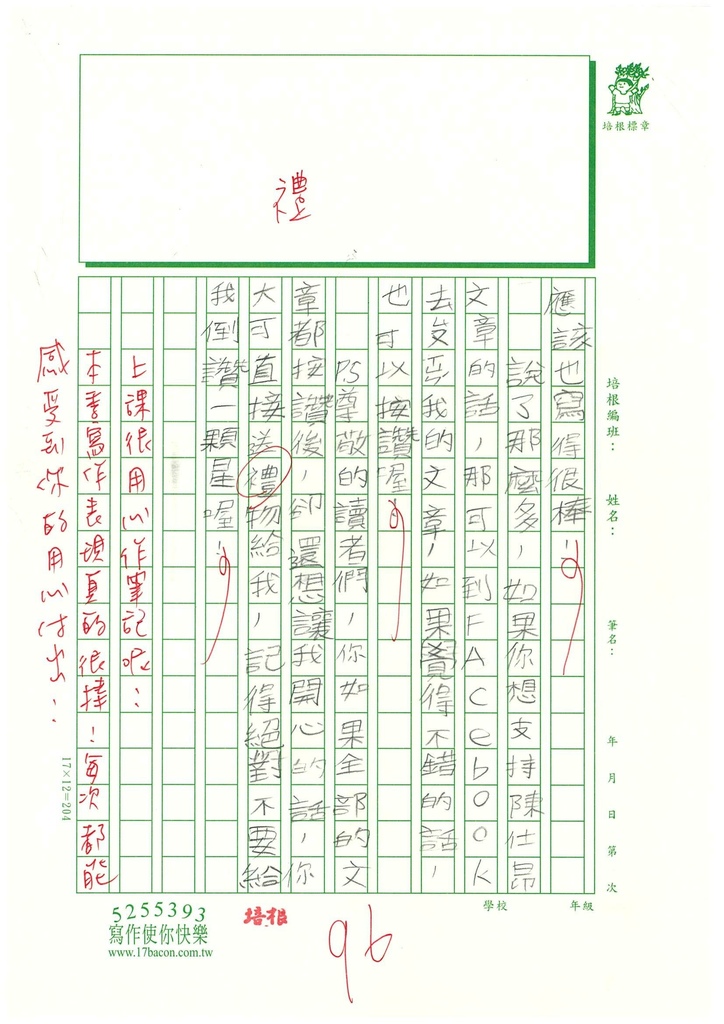 培根標章
禮
培根編班：
姓名：
筆名：
年 月 日 第 次
學校 年級
應該也寫得很棒！！
說了那麼多，如果你想支持陳仕昂
文章的話，那可以到FACebook
去
我的文章，如果覺得不錯的話，
也可以按讚喔！
PS尊敬的讀者們，你如果全部的文
章都按讚後，卻還想讓我開心的話，你
大可直接送禮物給我，記得絕對不要給
我倒讚一顆星喔！
上課很用心作筆記呢：
本季寫作表現真的很棒！每次都能
感受到你的用心付出：
17×12=204
5255393
寫作使你快樂
www.17bacon.com.tw
培根
96